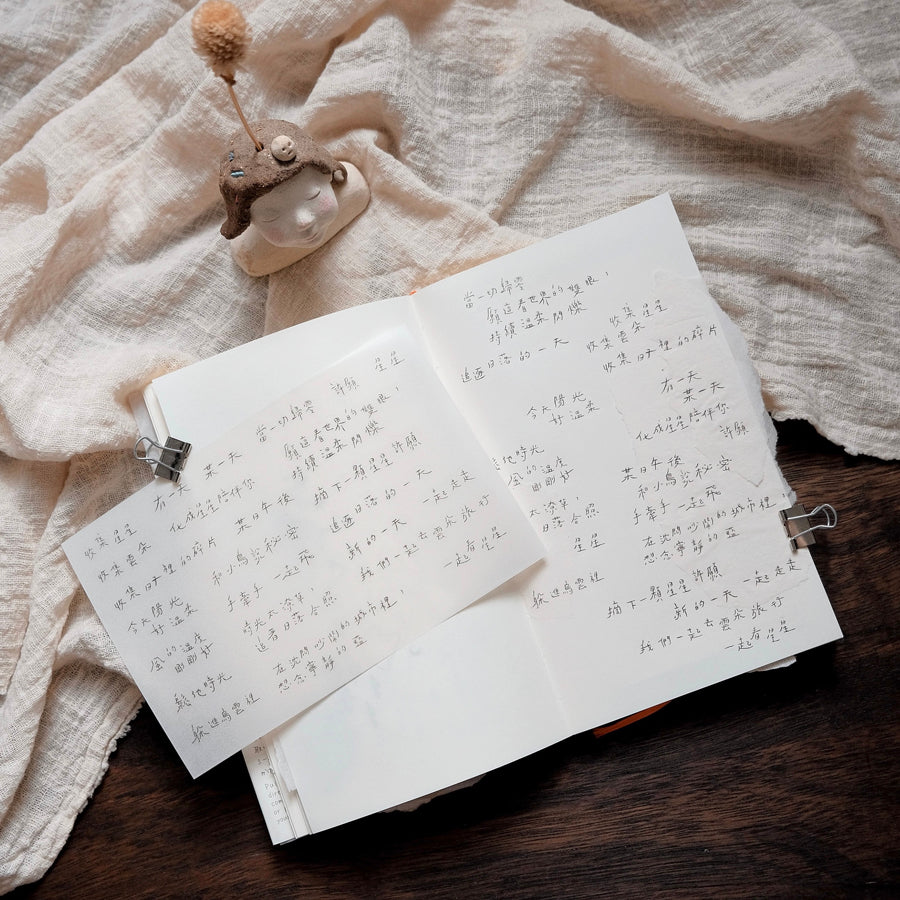 星星
許願
當一切歸零
願這看世界的雙眼,
持續溫柔閃爍
有一天 某一天
化成星星陪伴你
摘下一顆星星 許願
某日午後
和小鳥說秘密
追逐日落的一天
收集星星
收集雲朵
收集日子裡的碎片
手牽手 一起飛
新的一天 一起走走
我們一起去雲朵旅行
一起看星星
今天陽光
好溫柔
時光太漂亮,
追著日落合照
風的溫度
剛剛好
在沈悶吵鬧的城市裡,
想念寧靜的藍
慈他時光
躲進鳥雲裡
當一切歸零
願這看世界的雙眼,
持續溫柔閃爍
收集星星
收集雲朵
收集日子裡的碎片
追逐日落的一天
有一天
某一天
化成星星陪伴你
許願
今天陽光
好溫柔
他時光
風的溫度
剛剛好
某日午後
和小鳥說秘密
手牽手 一起飛
太漂亮,
日落合照
星星
在沈悶吵鬧的城市裡
想念寧靜的藍
躲進鳥雲裡
摘下一顆星星 許願
新的一天 一起走走
我們一起去雲朵旅行
一起看星星
Pu
dire
com
or
you